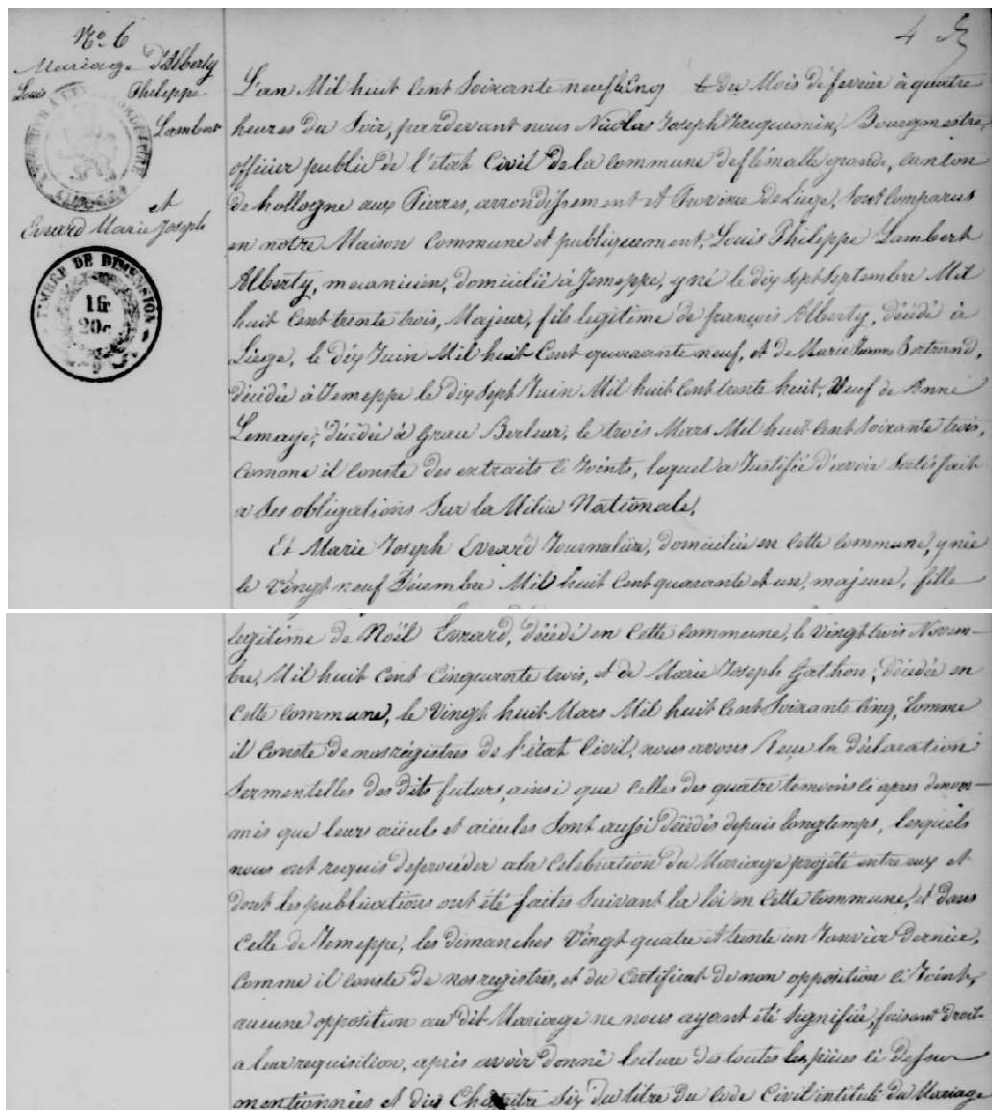 No. 6
Mariage D'Alberty
Louis Philippe
Lambert
et
Evrard Marie Joseph
TIMBRE DE DIMENSION
1 fr
20c
4
L'an Mil huit Cent Soixante neuf & Cinq du Mois de fevrier à quatre
heures du Soir, pardevant nous Nicolas Joseph Jacquemin, Bourgmestre,
officier public de l'état Civil de la commune de flémalle grande, Canton
de hollogne aux Pierres, arrondissement et Province de Liége, sont comparus
en notre Maison Commune et publiquement, Louis Philippe Lambert
Alberty, mecanicien, domicilié à Jemeppe, y né le dix Sept Septembre Mil
huit Cent trente trois, Majeur, fils legitime de françois Alberty, décédé à
Liége, le dix Juin Mil huit Cent quarante neuf, et de Marie Bertrand,
décédée à Jemeppe le dix Sept Juin Mil huit Cent trente huit, Veuf de Anne
Lemaye, décédée à Grace Berleur, le trois Mars Mil huit Cent Soixante trois,
comme il conste des extraits ci Joints, lequel a Justifié d'avoir Satisfait
a Ses obligations Sur la Milice Nationale,
Et Marie Joseph Evrard Journalière, domiciliée en cette commune, y née
le Vingt neuf Décembre Mil huit Cent quarante et un, majeure, fille
legitime de Noël Evrard, décédé en Cette Commune, le Vingt trois Novem-
bre, Mil huit Cent Cinquante trois, et de Marie Joseph Gathon, décédée en
Cette Commune, le Vingt huit Mars Mil huit Cent Soixante Cinq, Comme
il Conste de nos régistres de l'état Civil, nous avons Reçu la déclaration
Sermentelles des dits futurs, ainsi que Celles des quatre temoins ci apres denom-
mis que leurs aïeuls et aïeules Sont aussi décédés depuis longtemps, lesquels
nous ont requis de procéder a la Célébration du Mariage projété entre eux et
dont les publications ont été faites Suivant la loi en Cette Commune, et dans
Celle de Jemeppe, les dimanches Vingt quatre et trente un Janvier dernier,
Comme il Conste de nos registres, et du Certificat de non opposition ci Joint,
aucune opposition au dit Mariage ne nous ayant été Signifiée, faisant droit
a leur requisition, après avoir donné lecture de toutes les pièces ci dessus
mentionnées et du Chapitre Six du titre du Code Civil intitulé du Mariage